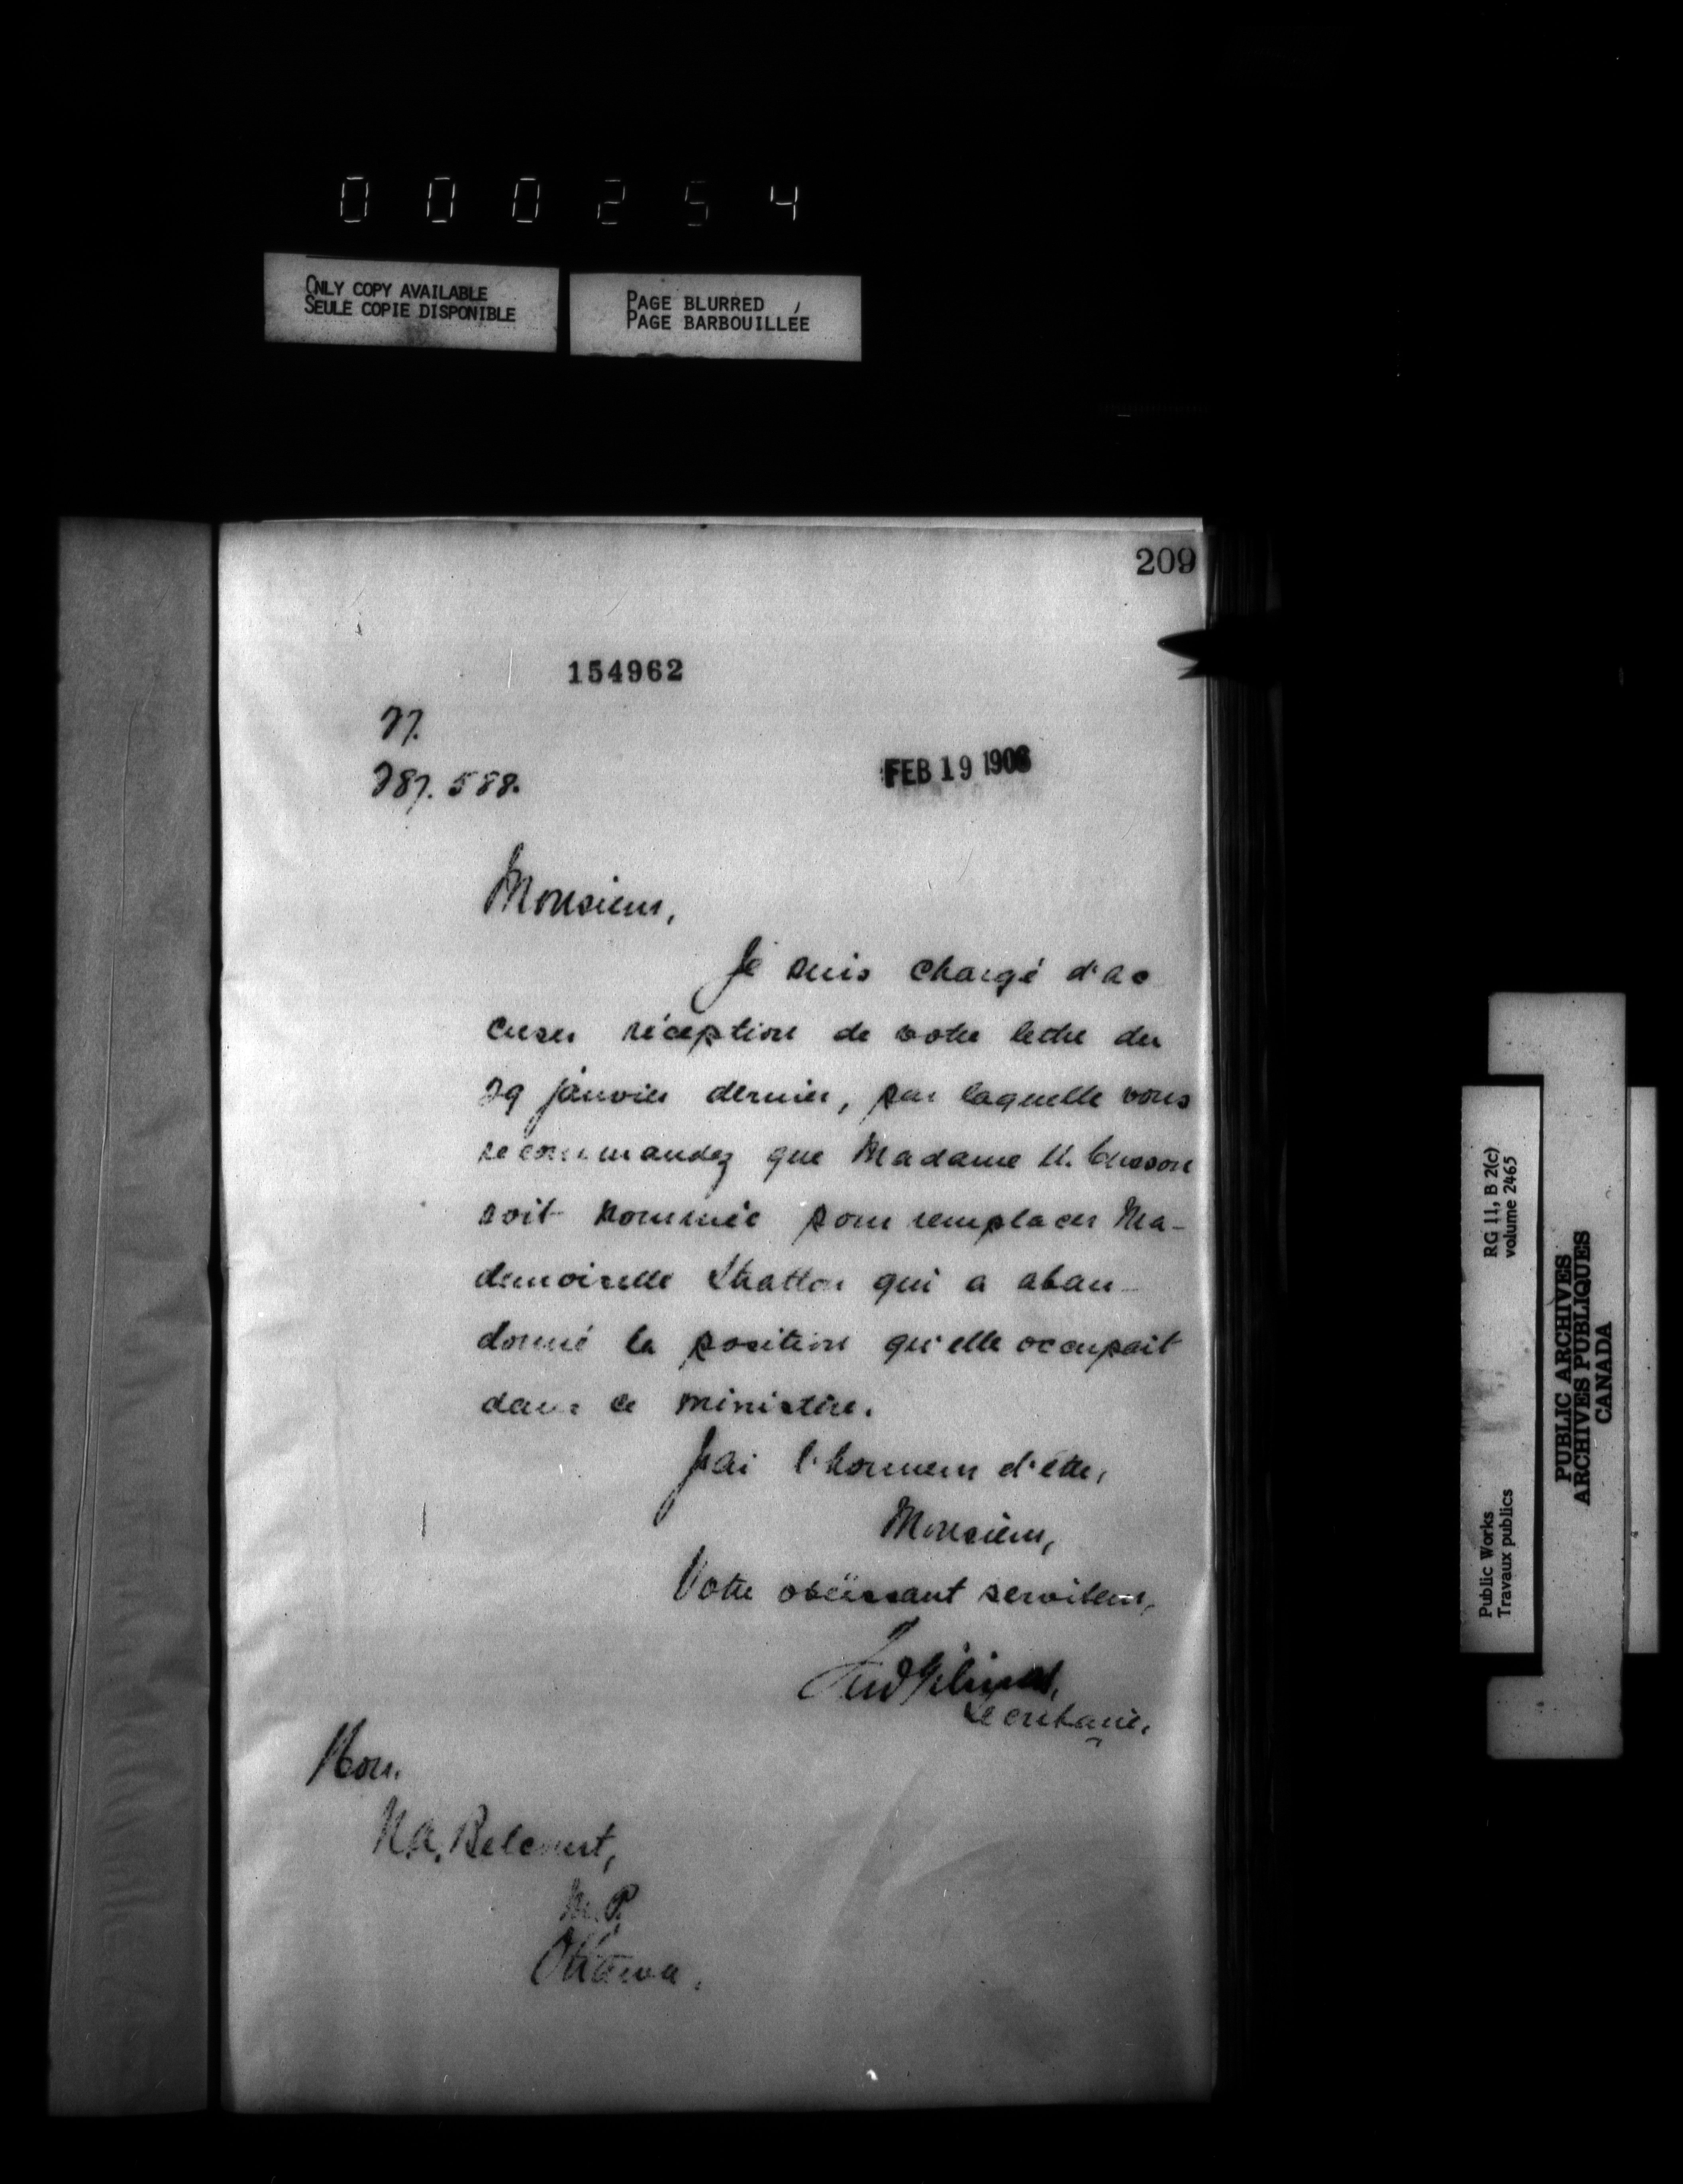 000254
ONLY COPY AVAILABLE
SEULE COPIE DISPONIBLE
PAGE BLURRED
PAGE BARBOUILLÉE
209
154962
287.588.
FEB 19 1906
Monsieur,
Je suis chargé d'ac
cuser réception de votre lettre du
29 janvier dernier, par laquelle vous
recommandez que Madame
soit nommée pour remplacer Ma-
demoiselle Stratton qui a aban-
donné la position qu'elle occupait
dans ce ministère.
J'ai l'honneur d'être,
Monsieur,
Votre obéissant serviteur,
Fred Gélinas,
Secrétaire.
Hon.
N.A. Belcourt,
M.P.
Ottawa.
Public Works
Travaux publics
RG 11, B 2(c)
volume 2465
PUBLIC ARCHIVES
ARCHIVES PUBLIQUES
CANADA